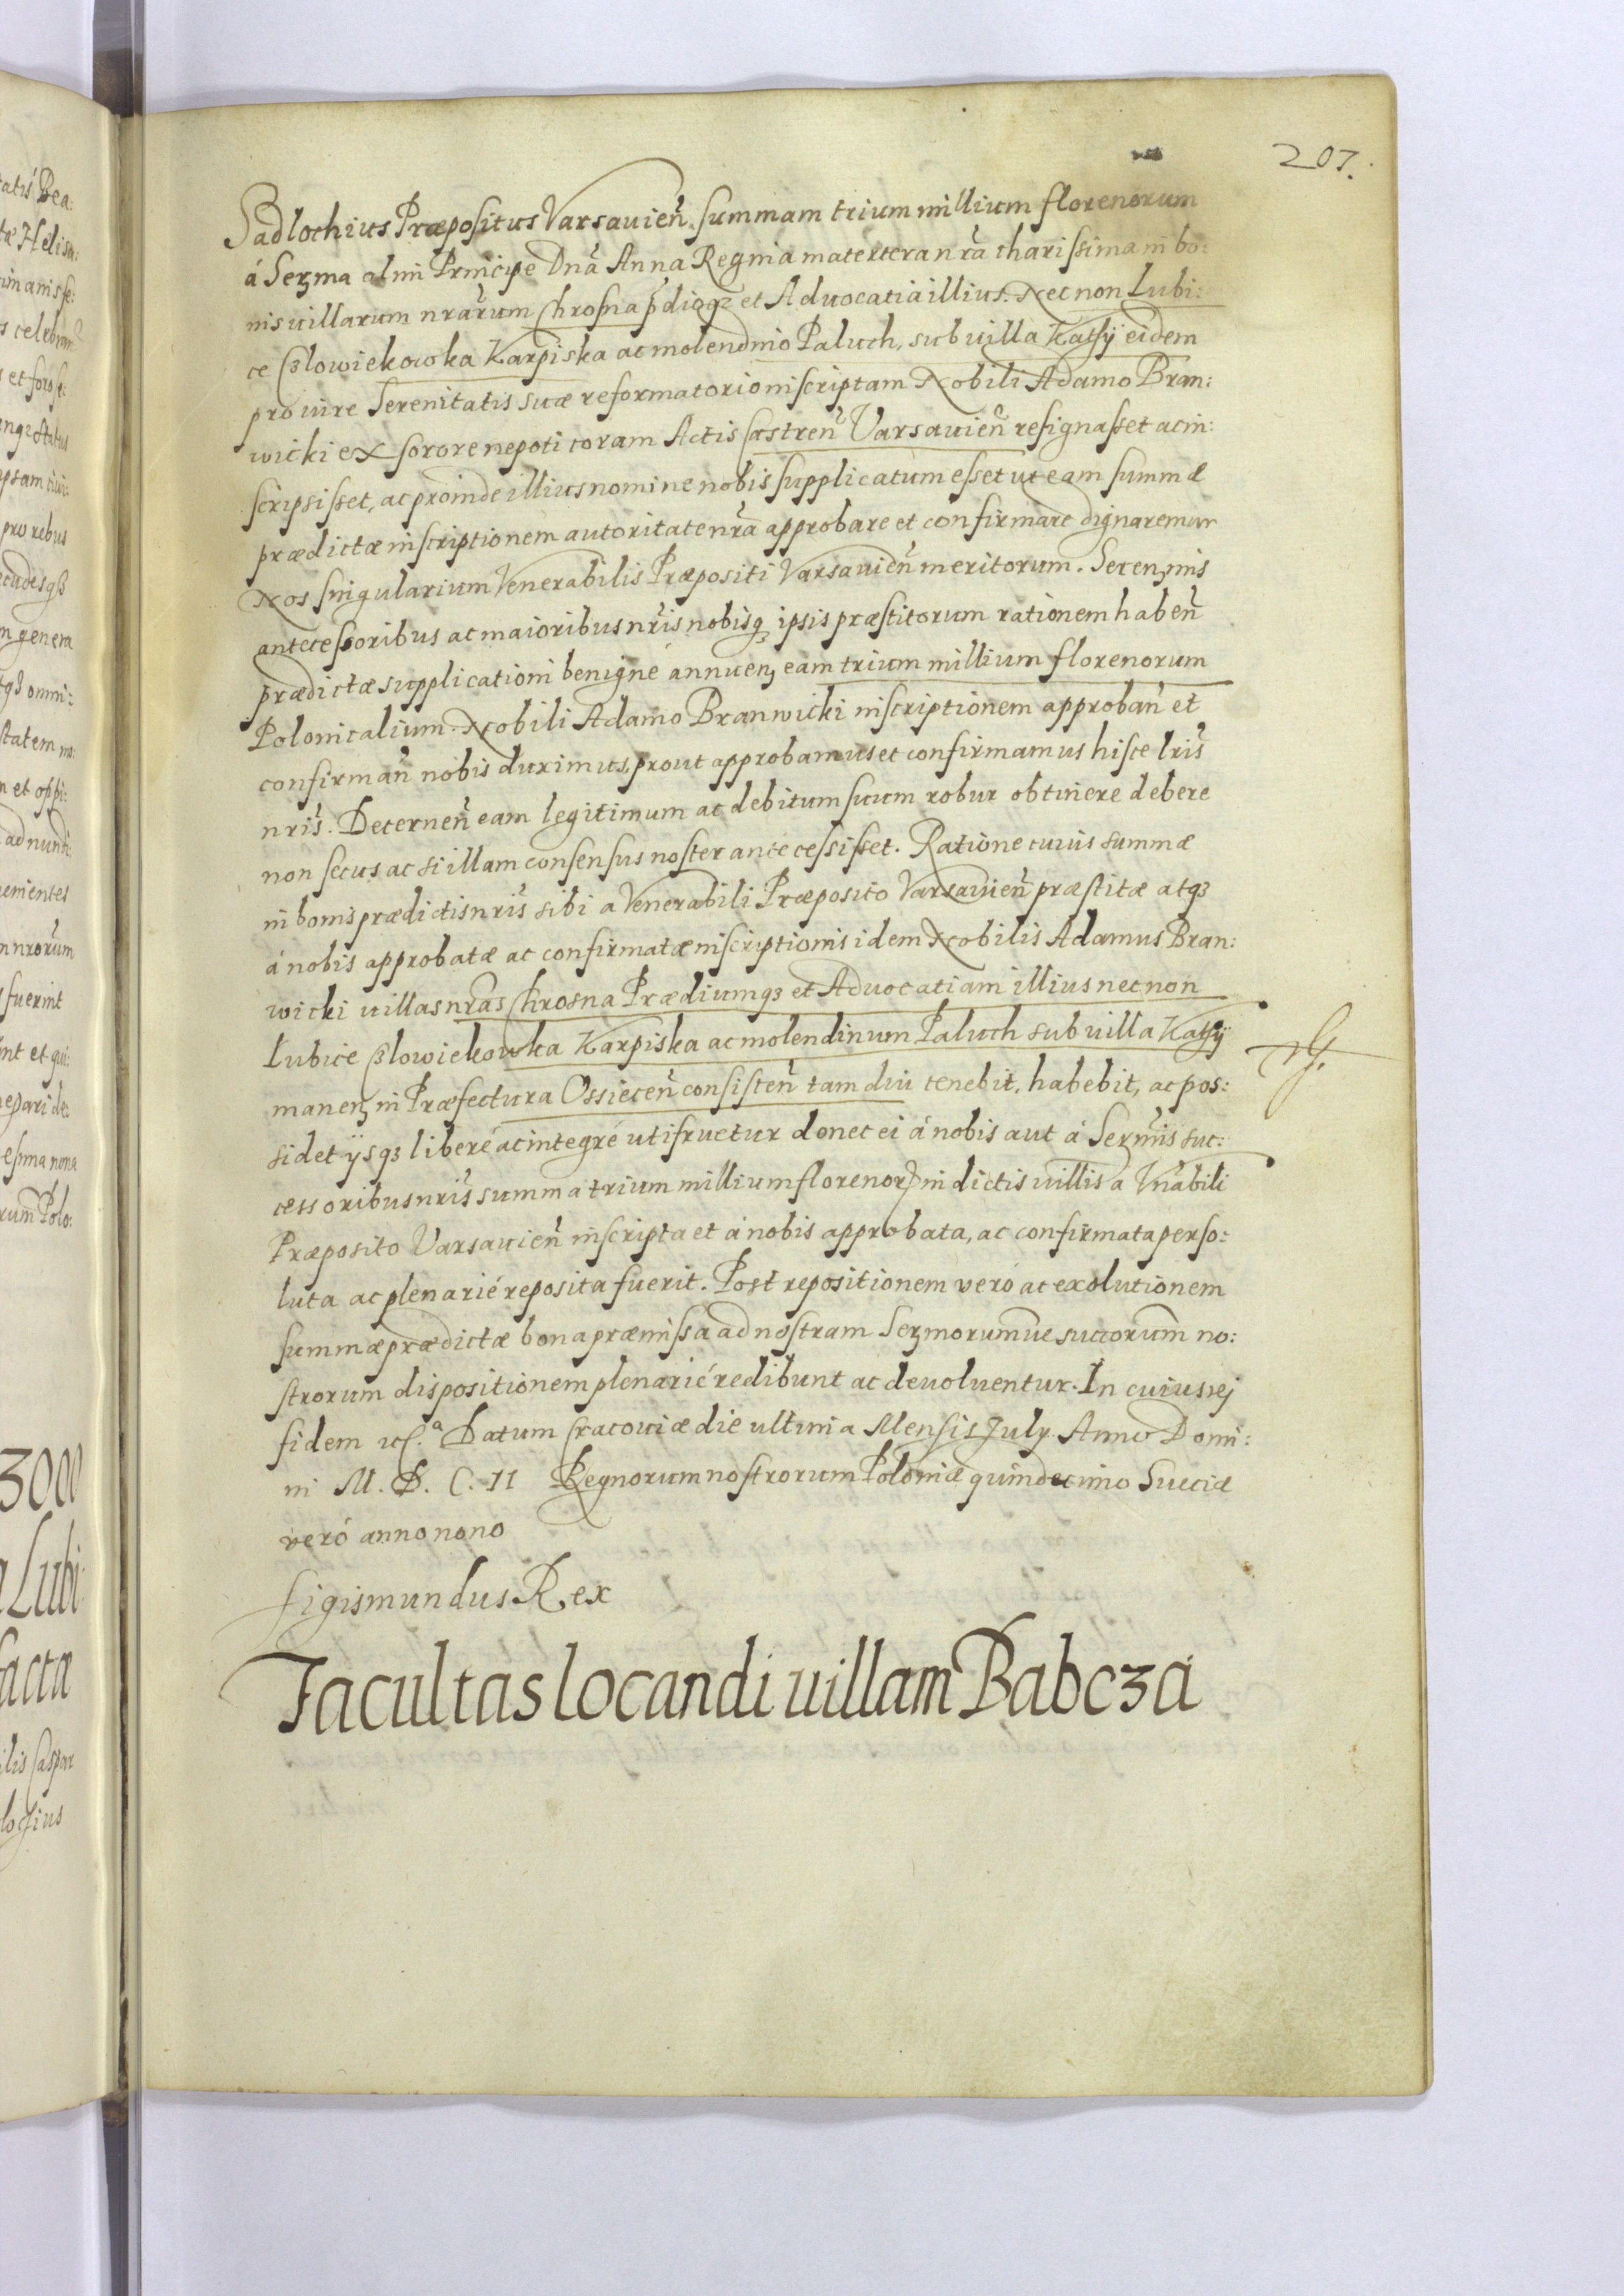 207.
Sadlochius Præpositus Varsavień. summam trium millium florenorum
á Serma olim Principe Dna Anna Regina matertera nra charissima in bo:
nis villarum nrarum Chrosna pdioqz et Advocatia illius. Necnon Lubi:
ce Czlowiekowka Karpiska ac molendino Paluch, sub villa Katÿ eidem
pro iure Serenitatis suæ reformatorio inscriptam Nobili Adamo Bran:
wicki ex sorore nepoti coram Actis Castreń Varsavień resignasset ac in:
scripsisset, ac proinde illius nomine nobis supplicatum esset ut eam summæ
prædictæ inscriptionem autoritate nra approbare et confirmare dignaremur
Nos singularium Venerabilis Præpositi Varsavień meritorum. Serenmis
antecessoribus ac maioribus nris nobisqz ipsis præstitorum rationem habeń
prædictæ supplicationi benigné annuenz eam trium millium florenorum
Polonicalium Nobili Adamo Branwicki inscriptionem approbań et
confirmań nobis duximus, prout approbamus et confirmamus hisce lris
nris. Decerneń eam legitimum ac debitum suum robur obtinere debere
non secus ac si illam consensus noster antecessisset. Ratione cuius summæ
in bonis prædictis nris sibi a Venerabili Præposito Varsavień præstitæ atqz
á nobis approbatæ ac confirmatæ inscriptionis idem Nobilis Adamus Bran:
wicki villas nras Chrosna Prædiumqz et Advocatiam illius necnon
Lubice Czlowiekowka Karpiska ac molendinum Paluch sub villa Katÿ
manenz in Præfectura Ossieceń consisteń tam diu tenebit, habebit, ac pos:
sidet ÿsqz liberé ac integré utifruetur donec ei á nobis aut á Sermis suc:
cessoribus nris summa trium millium florenor in dictis villis a Vnabili
Præposito Varsavień inscripta et á nobis approbata, ac confirmata perso:
luta ac plenarié reposita fuerit. Post repositionem veró ac exolutionem
summæ prædictæ bona præmissa ad nostram Sermorumve succorum no:
strorum dispositionem plenarié redibunt ac devoluentur. In cuius rej
fidem Datum Cracoviæ die ultima Mensis July Anno Domi:
ni M. D. C. II Regnorum nostrorum Poloniæ quindecimo Sueciæ
veró anno nono
Sigismundus Rex
Facultas locandi villam Babcza